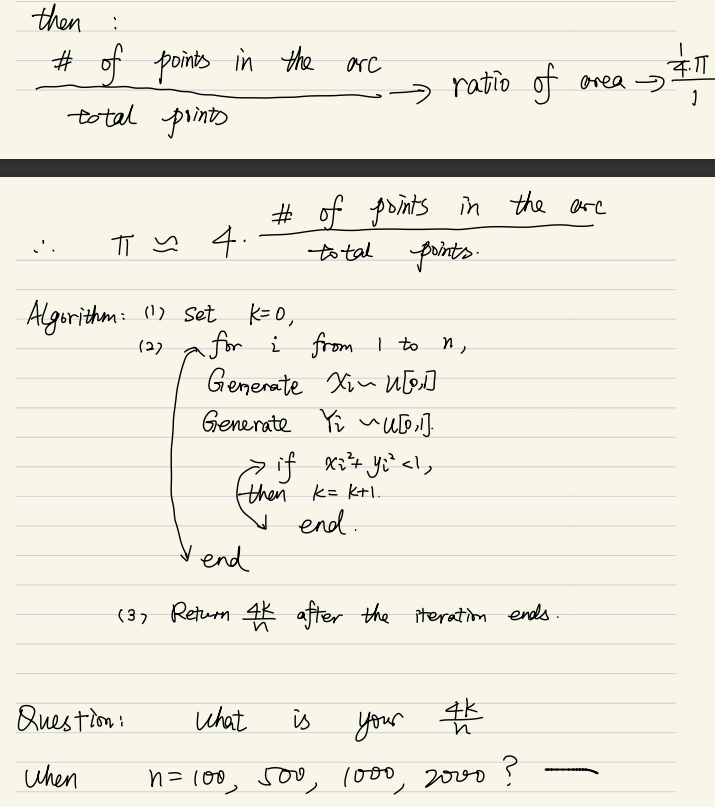 then :
# of points in the arc / total points → ratio of area → 1/4·π / 1
∴ π ≈ 4· # of points in the arc / total points.
Algorithm: (1) set k=0,
(2) for i from 1 to n,
Generate Xi ~ U[0,1]
Generate Yi ~ U[0,1].
if xi²+ yi² <1,
then k= k+1.
end.
end
(3) Return 4k/n after the iteration ends.
Question: What is your 4k/n
when n=100, 500, 1000, 2000 ? —